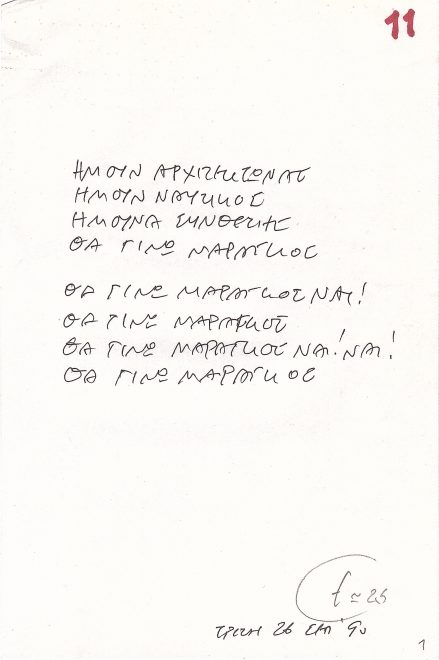 11
ΗΜΟΥΝ ΑΡΧΙΤΕΚΤΩΝΑΣ
ΗΜΟΥΝ ΝΑΥΤΙΚΟΣ
ΗΜΟΥΝΑ ΣΥΝΘΕΤΗΣ
ΘΑ ΓΙΝΩ ΜΑΡΑΓΚΟΣ
ΘΑ ΓΙΝΩ ΜΑΡΑΓΚΟΣ ΝΑΙ!
ΘΑ ΓΙΝΩ ΜΑΡΑΓΚΟΣ
ΘΑ ΓΙΝΩ ΜΑΡΑΓΚΟΣ ΝΑΙ! ΝΑΙ!
ΘΑ ΓΙΝΩ ΜΑΡΑΓΚΟΣ
ΤΡΙΤΗ 26 ΣΕΠ '90
1